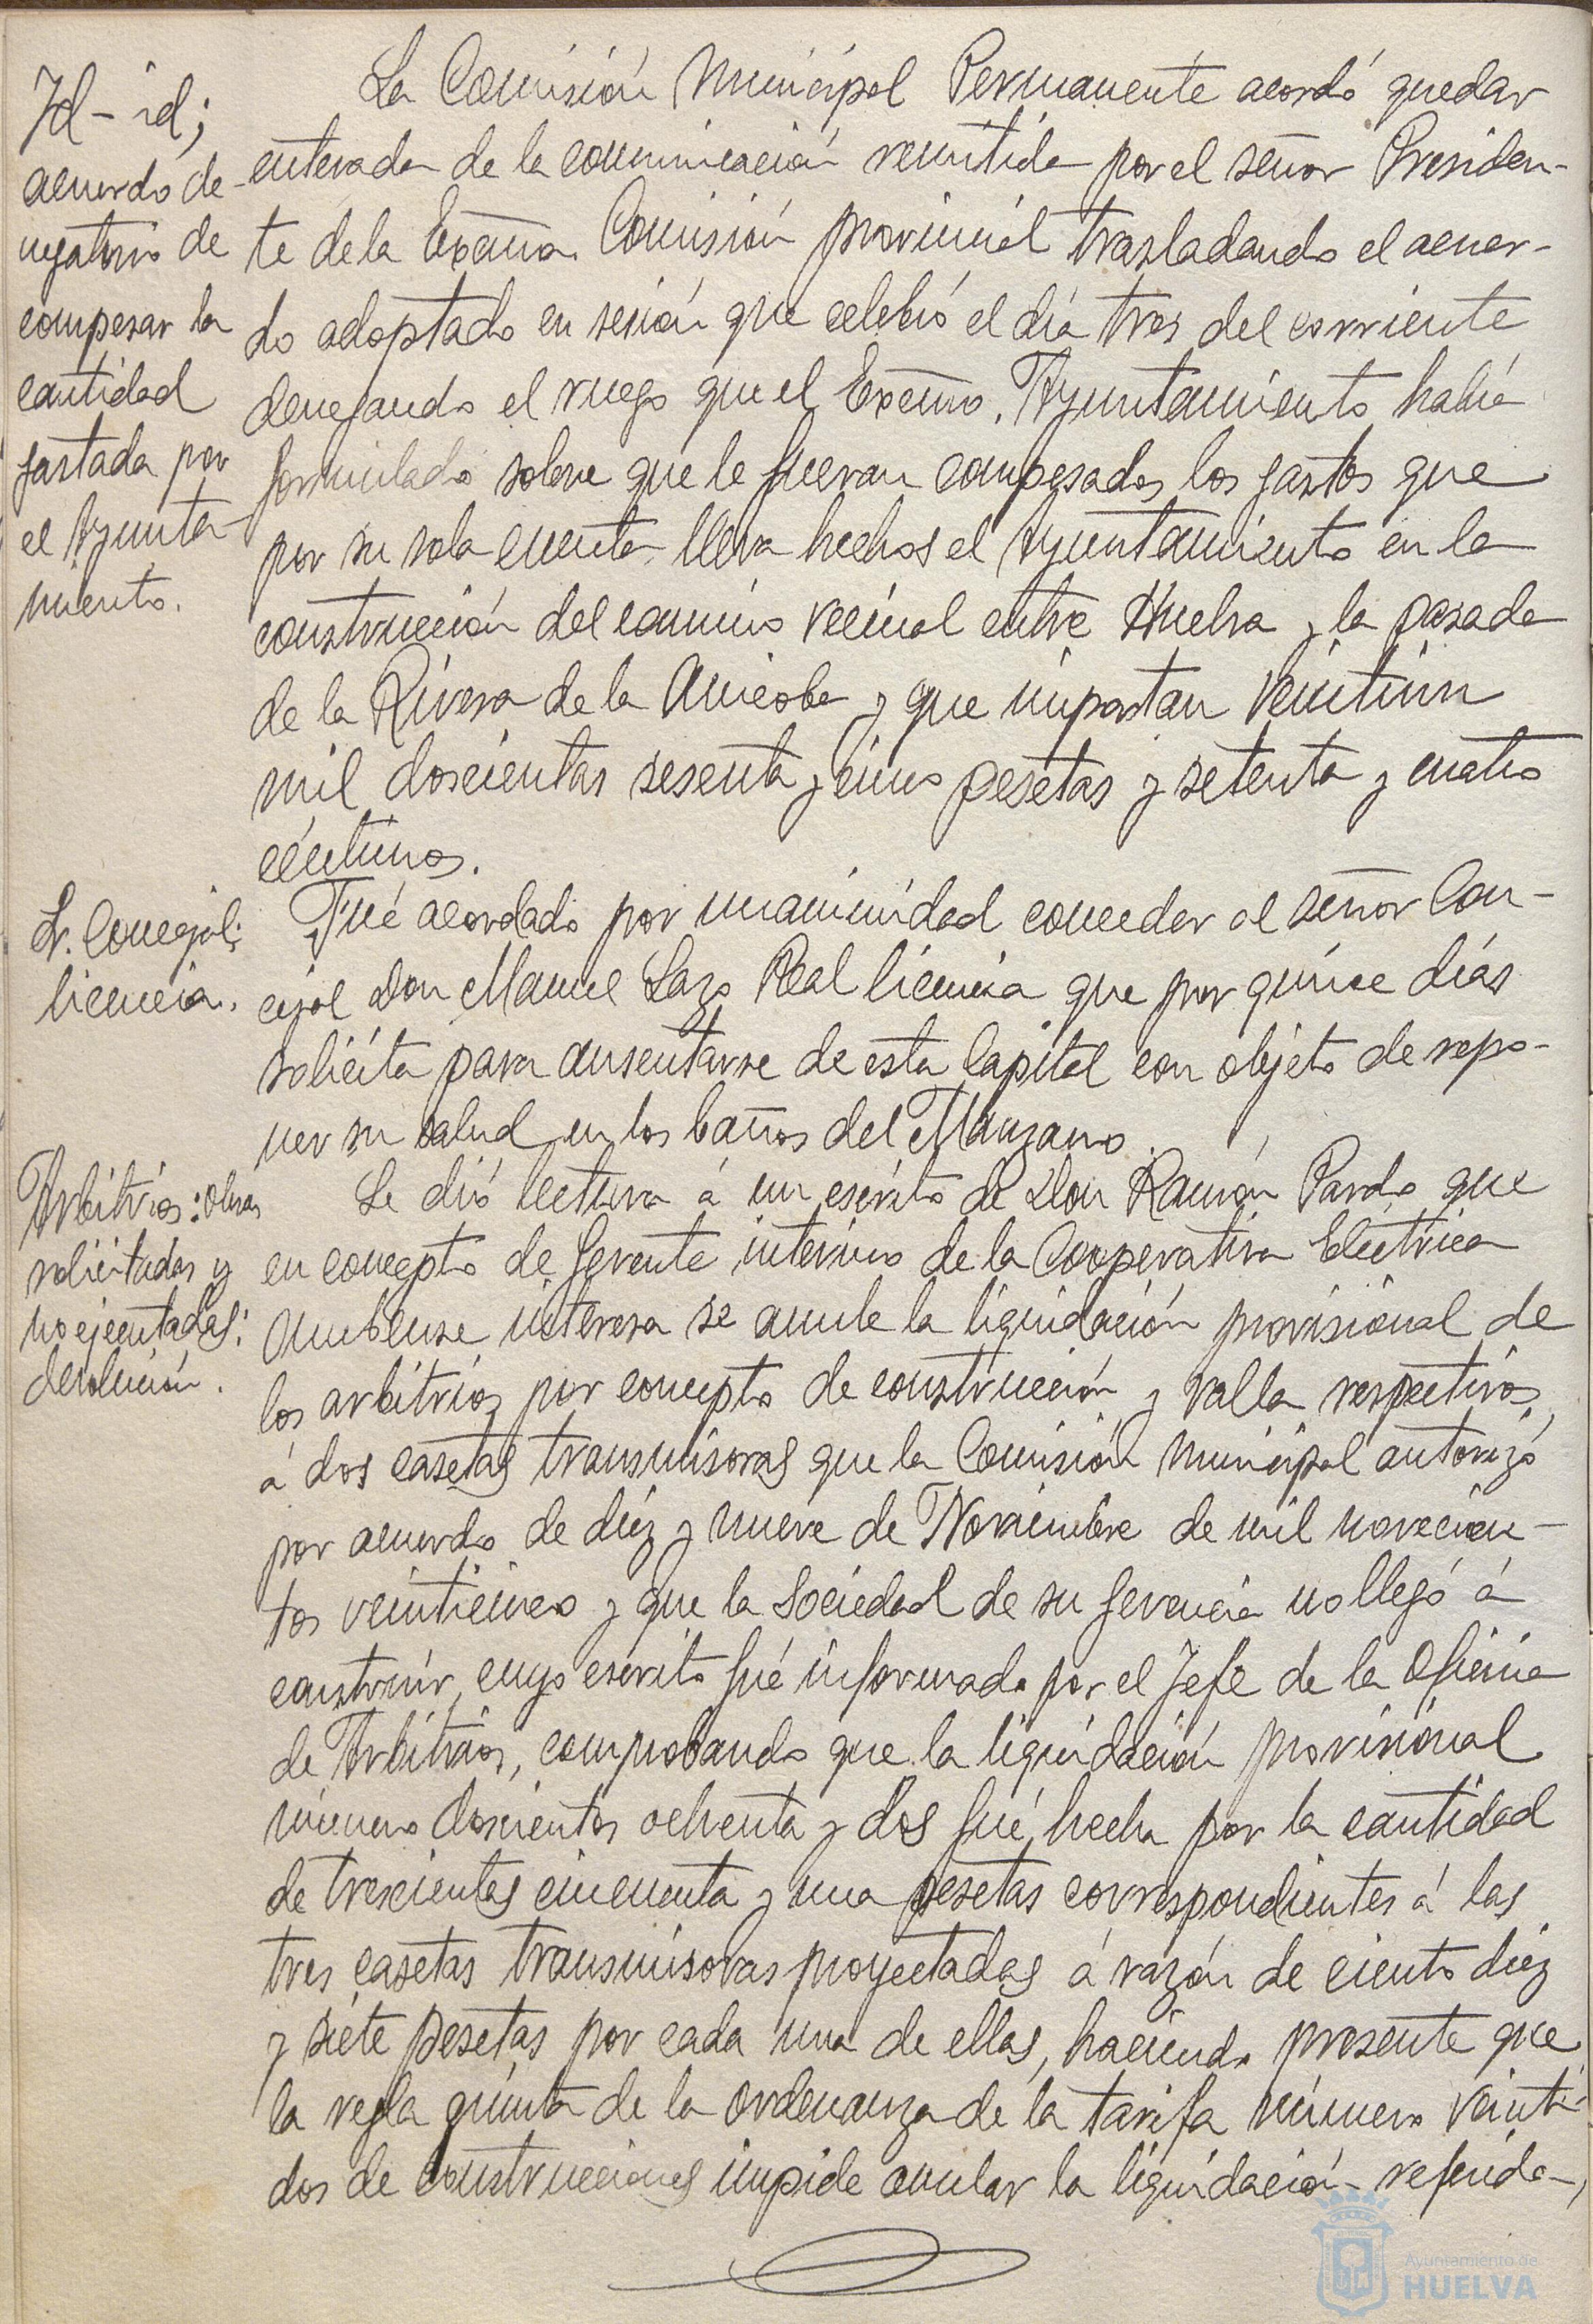 Id - id;
acuerdo de-
negatorio de
compesar la
cantidad
gastada por
el Ayunta-
miento.
La Comisión Municipal Permanente acordó quedar
enterada de la comunicación remitida por el señor Presiden-
te de la Excma. Comisión provincial trasladando el acuer-
do adoptado en sesión que celebró el día tres del corriente
denegando el ruego que el Excmo. Ayuntamiento había
formulado sobre que le fueran compesados los gastos que
por su sola cuenta lleva hechos el Ayuntamiento en la
construcción del camino vecinal entre Huelva y la posada
de la Rivera de la Anicoba y que importan veintiun
mil doscientas sesenta y cinco pesetas y setenta y cuatro
céntimos.
Sr. Concejal;
licencia.
Fué acordado por unanimidad conceder al señor Con-
cejal Don Manuel Lazo Real licencia que por quince días
solicita para ausentarse de esta Capital con objeto de repo-
ner su salud en los baños del Manzano.
Arbitrios: obras
solicitadas y
no ejecutadas:
devolución.
Se dió lectura á un escrito de Don Ramón Pardo que
en concepto de Gerente interino de la Cooperativa Eléctrica
Onubense interesa se anule la liquidación provisional de
los arbitrios por concepto de construcción y valla respectivos
á dos casetas transmisoras que la Comisión Municipal autorizó
por acuerdo de diez y nueve de Noviembre de mil novecien-
tos veinticinco y que la Sociedad de su gerencia no llegó á
construir, cuyo escrito fué informado por el Jefe de la Oficina
de Arbitrios, comprobando que la liquidación provisional
número doscientos ochenta y dos fué hecha por la cantidad
de trescientas cincuenta y una pesetas correspondientes á las
tres casetas transmisoras proyectadas á razón de ciento diez
y siete pesetas por cada una de ellas, haciendo presente que
la regla quinta de la ordenanza de la tarifa número veinti-
dos de construcciones impide anular la liquidación referida,
Ayuntamiento de
HUELVA